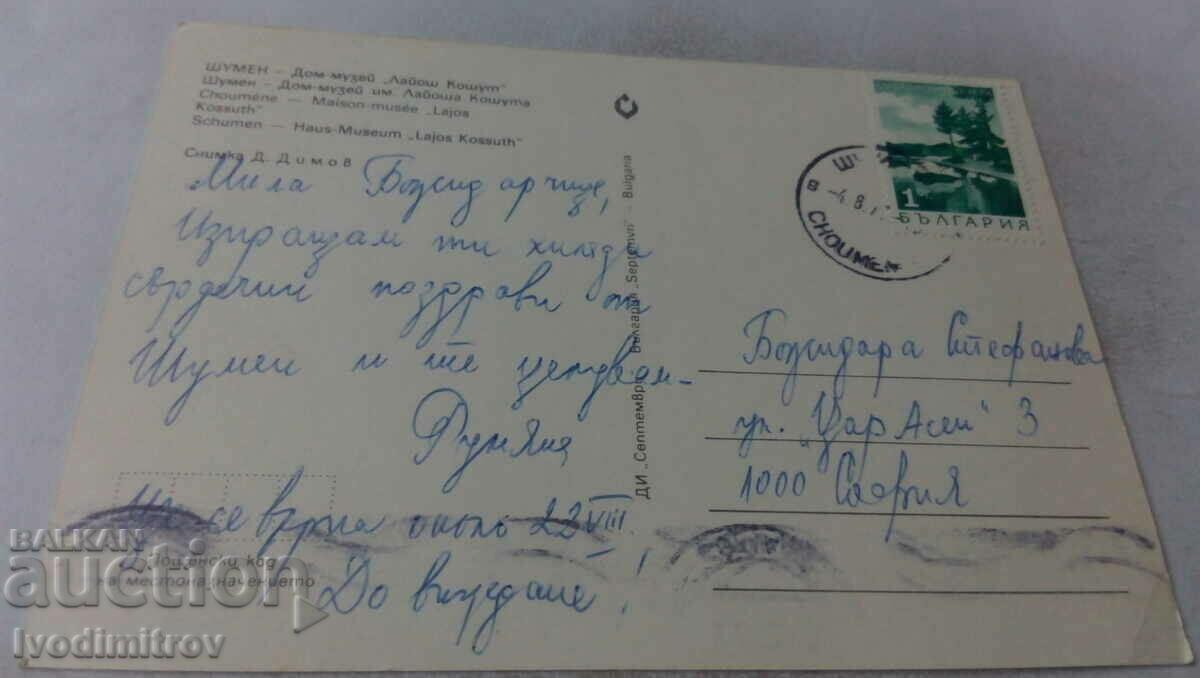 ШУМЕН — Дом-музей „Лайош Кошут"
Шумен — Дом-музей им. Лайоша Кошута
Choumène — Maison-musée „Lajos
Kossuth"
Schumen — Haus-Museum „Lajos Kossuth"
Снимка Д. Димов
Мила Божидарчице,
Изпращам ти хиляди
сърдечни поздрави от
Шумен и те целувам
Румяна
Ще се върна около 22 VIII.
До виждане!
ДИ „Септември" — България „Septemvri" — Bulgaria
Пощенски код
на местоназначението
1
БЪЛГАРИЯ
4.8.
CHOUMEN
Божидара Стефанова
ул. „Цар Асен" 3
1000 София
BALKAN
auction
Ivodimitrov